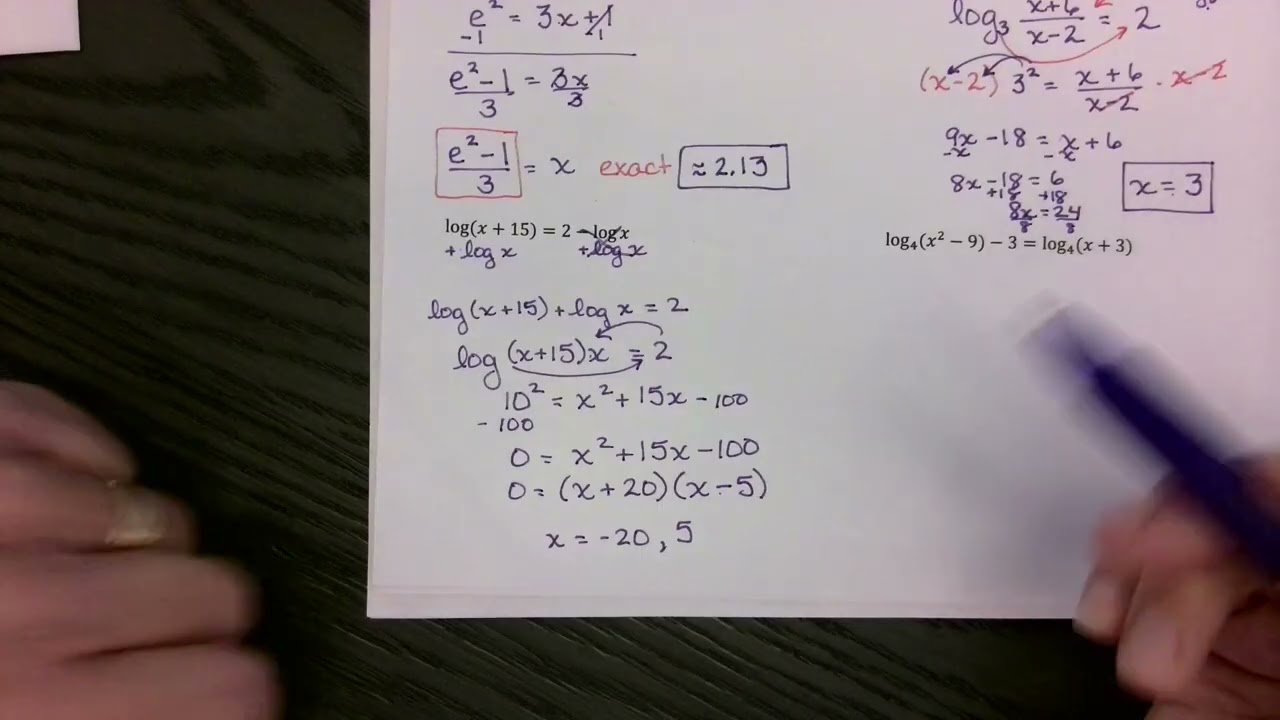 e² = 3x + 1
-1 -1
e² - 1 / 3 = 3x / 3
e² - 1 / 3 = x exact ≈ 2.13
log(x + 15) = 2 - log x
+ log x + log x
log (x+15) + log x = 2
log (x+15)x = 2
10² = x² + 15x - 100
- 100
0 = x² + 15x - 100
0 = (x + 20)(x - 5)
x = -20, 5
log₃ x+6 / x-2 = 2
(x-2) 3² = x+6 / x-2 · x-2
9x - 18 = x + 6
-x -x
8x - 18 = 6
+18 +18
8x / 8 = 24 / 8
x = 3
log₄(x² − 9) − 3 = log₄(x + 3)